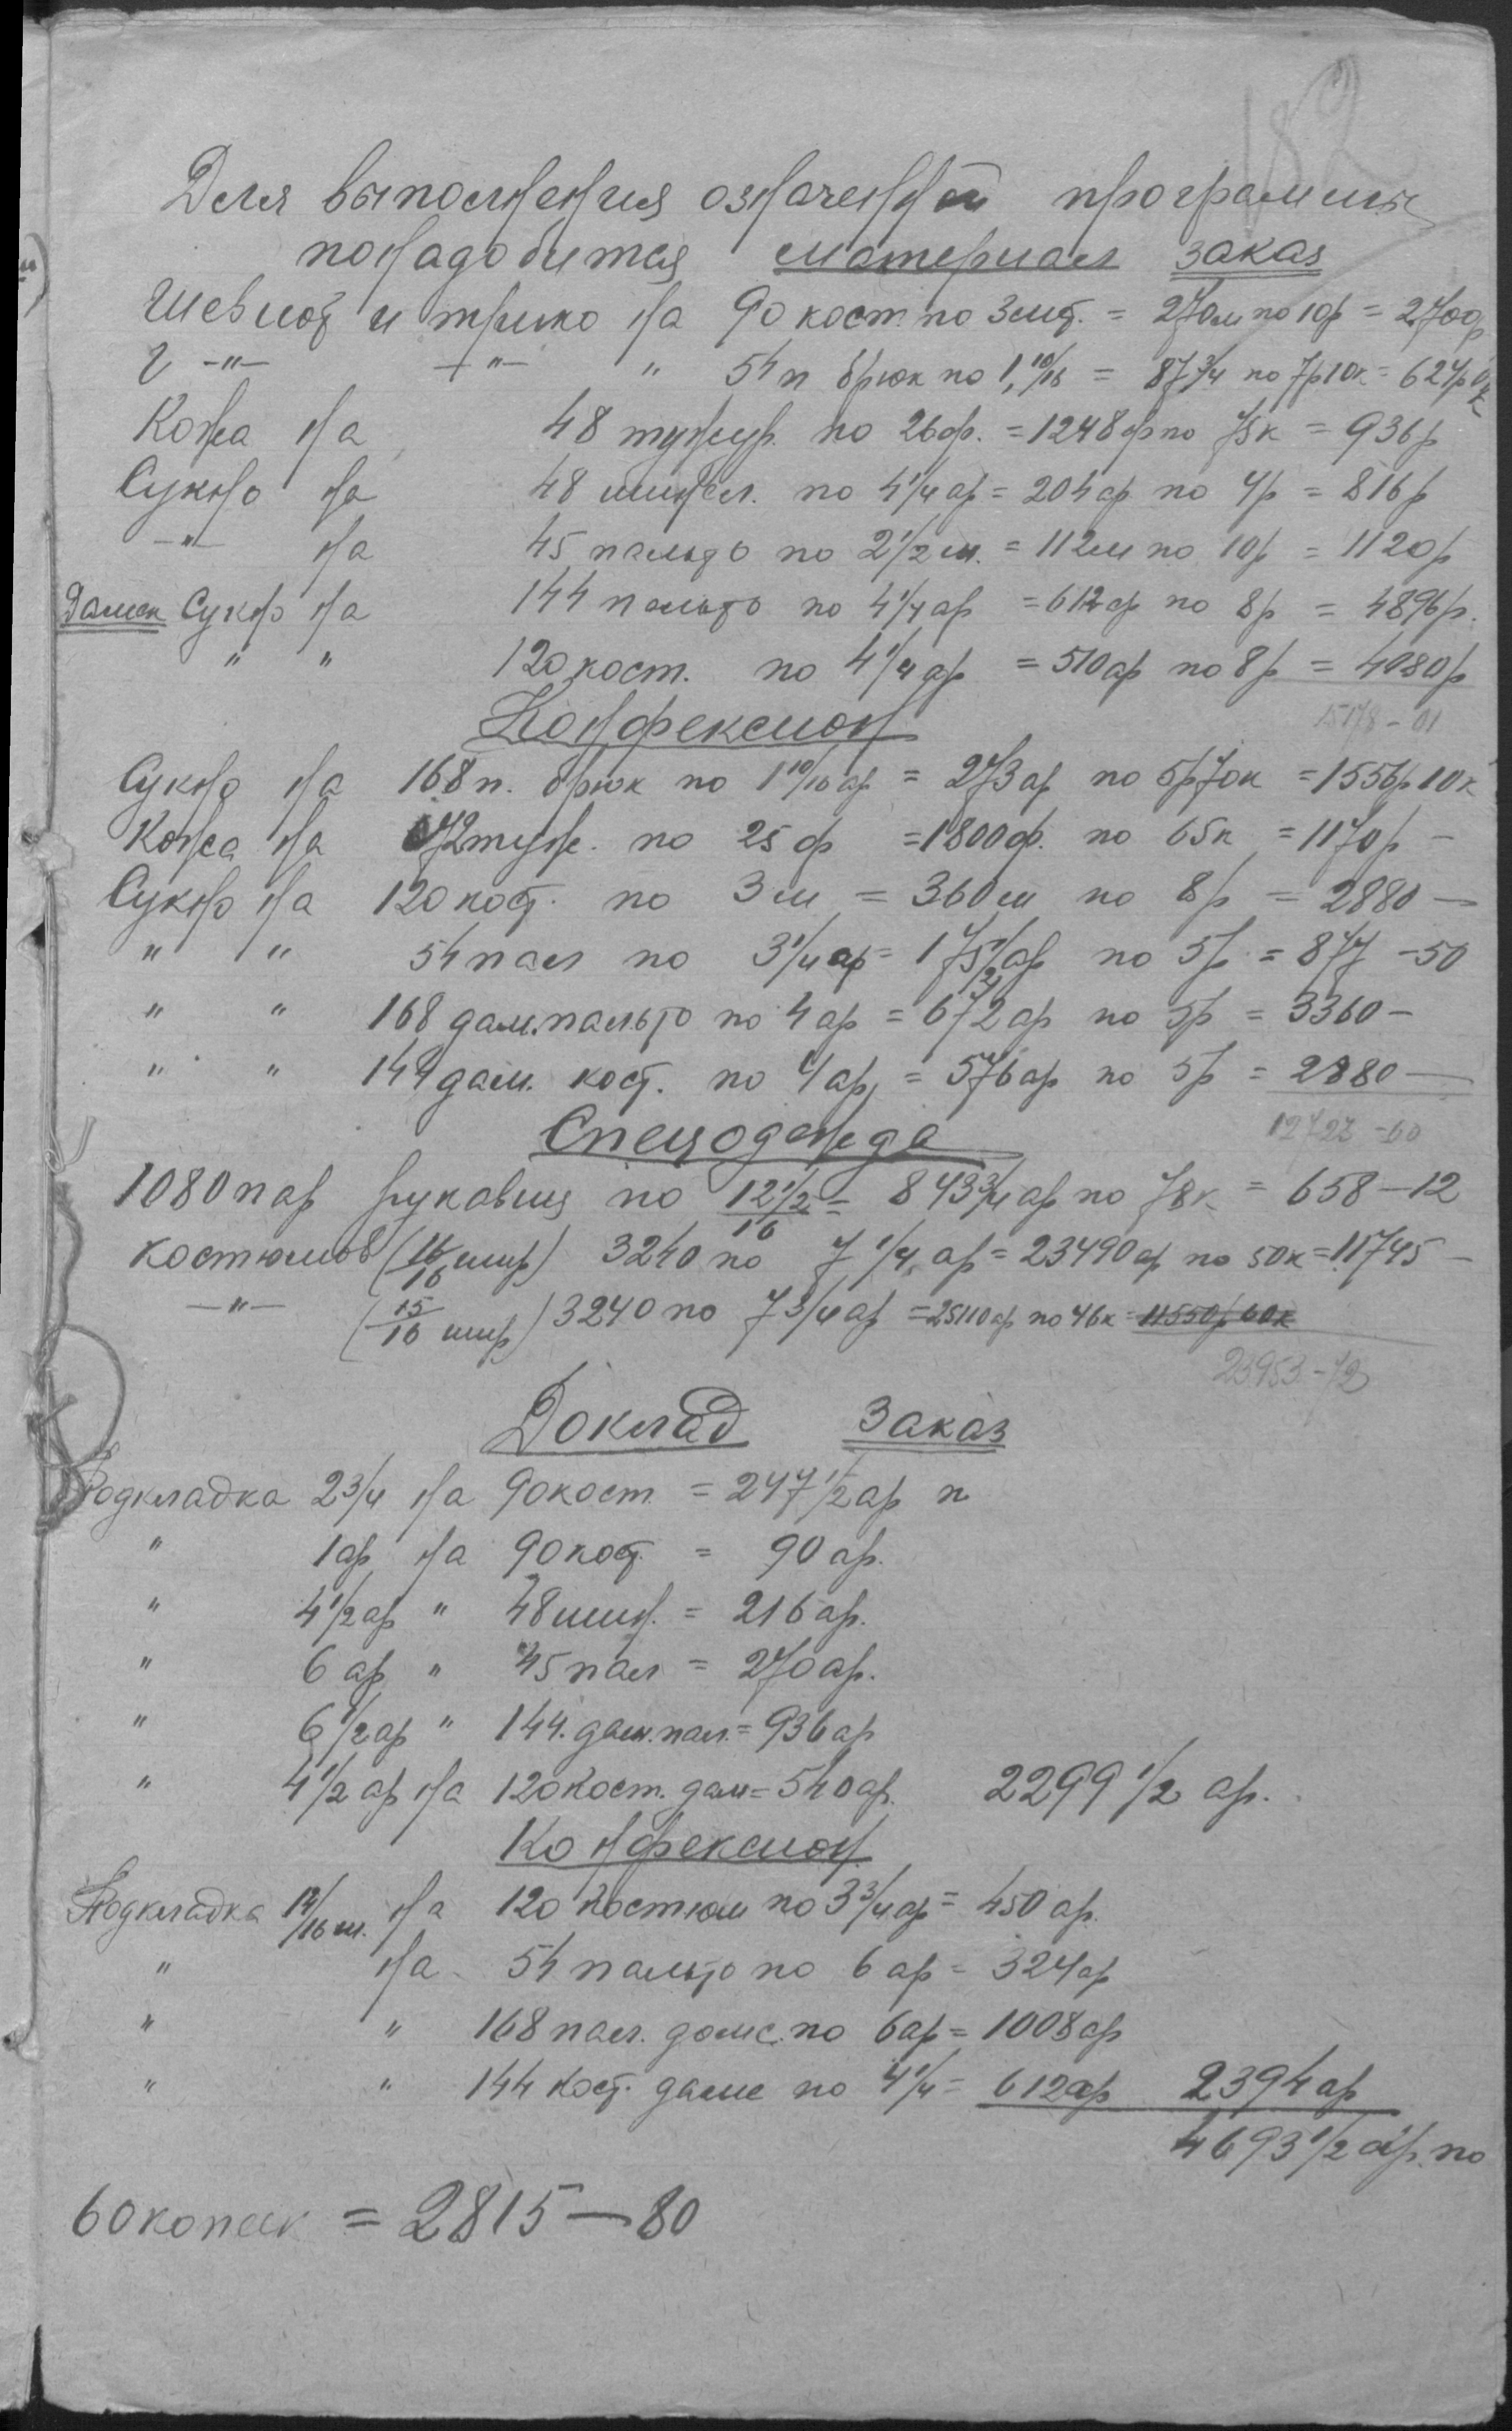 182
Для выполнения означенной программы
понадобится материал заказ
Шевиот и трико на 90 кост. по 3 мт. = 270 м по 10р = 2700р
" —"— —"— " 54 п брюк по 1,10/16 = 87 3/4 по 7р10к = 624р
Кожа на 48 тужур. по 26 ф. = 1248 ф по 75к = 936р
Сукно на 48 шинел. по 4 1/4 ар = 204 ар по 4р = 816р
—"— на 45 пальто по 2 1/2 м. = 112 м по 10р = 1120р
Дамск Сукно на 144 пальто по 4 1/4 ар = 612 ар по 8р = 4896р.
" " 120 кост. по 4 1/4 ар = 510 ар по 8р = 4080р
15178 - 01
Конфексион
Сукно на 168 п. брюк по 1 10/16 ар = 273 ар по 5р70к = 1556р10к
Кожа на 72 туж. по 25 ф = 1800 ф. по 65к = 1170р —
Сукно на 120 кост. по 3 м = 360 м по 8р = 2880 —
" " 54 пал по 3 1/4 ар = 175 1/2 ар по 5р = 877 - 50
" " 168 дам. пальто по 4 ар = 672 ар по 5р = 3360 —
" " 144 дам. кост. по 4 ар = 576 ар по 5р = 2880 —
12727 - 60
Спецодежда
1080 пар рукавиц по 12 1/2/16 = 843 3/4 ар по 78к = 658 — 12
костюмов (16/16 шир) 3240 по 7 1/4 ар = 23490 ар по 50к = 11745 —
—"— (15/16 шир) 3240 по 7 3/4 ар = 25110 ар по 46к = 11550р60к
23953 - 72
Доклад Заказ
Подкладка 2 3/4 на 90 кост = 247 1/2 ар п
" 1 ар на 90 кост. = 90 ар.
" 4 1/2 ар " 48 шин. = 216 ар.
" 6 ар " 45 пал = 270 ар.
" 6 1/2 ар " 144. дам. пал. = 936 ар
" 4 1/2 ар на 120 Кост. дам = 540 ар. 2299 1/2 ар.
Конфексион
Подкладка 14/16 ш. на 120 костюм по 3 3/4 ар = 450 ар.
" на 54 пальто по 6 ар = 324 ар
" " 168 пал. дамс. по 6 ар = 1008 ар
" " 144 кост. дамс по 4 1/4 = 612 ар 2394 ар
4693 1/2 ар. по
60 копеек = 2815 — 80